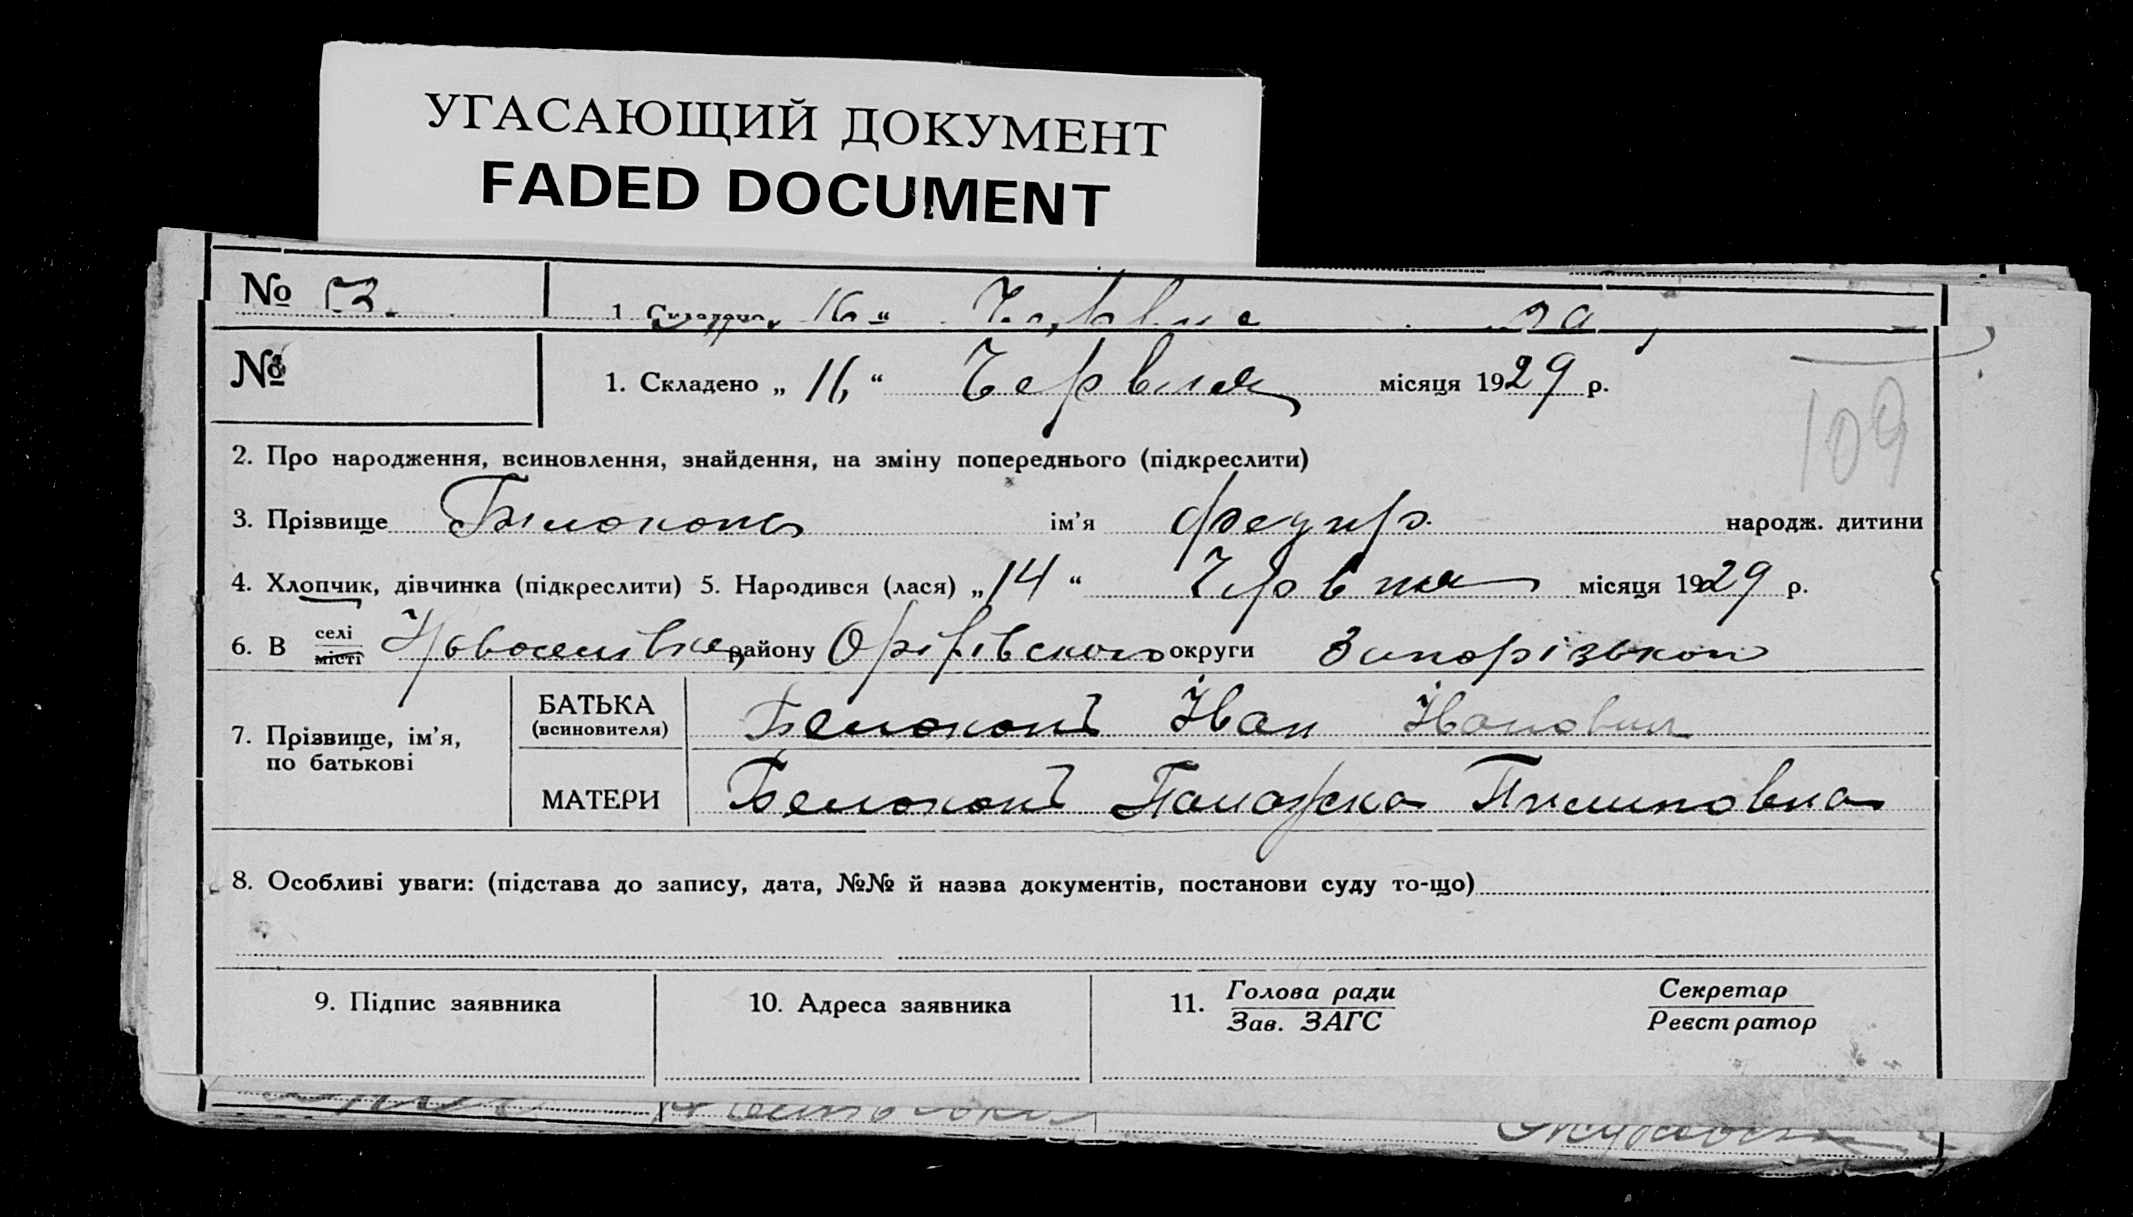 УГАСАЮЩИЙ ДОКУМЕНТ
FADED DOCUMENT
№ 3.
1. Складено 16 " Червня 29
№
1. Складено „ 16 “ Червня місяця 1929 р.
109
2. Про народження, всиновлення, знайдення, на зміну попереднього (підкреслити)
3. Прізвище Білоконь ім'я Федир народж. дитини
4. Хлопчик, дівчинка (підкреслити) 5. Народився (лася) „ 14 “ Червня місяця 1929 р.
6. В селі місті Новоселівка району Оріхівского округи Запорізькой
7. Прізвище, ім'я, по батькові
БАТЬКА (всиновителя) Белоконь Иван Иванович
МАТЕРИ Белоконь Палажка Пилиповна
8. Особливі уваги: (підстава до запису, дата, №№ й назва документів, постанови суду то-що)
9. Підпис заявника
10. Адреса заявника
11. Голова ради
Зав. ЗАГС
Секретар
Реєстратор